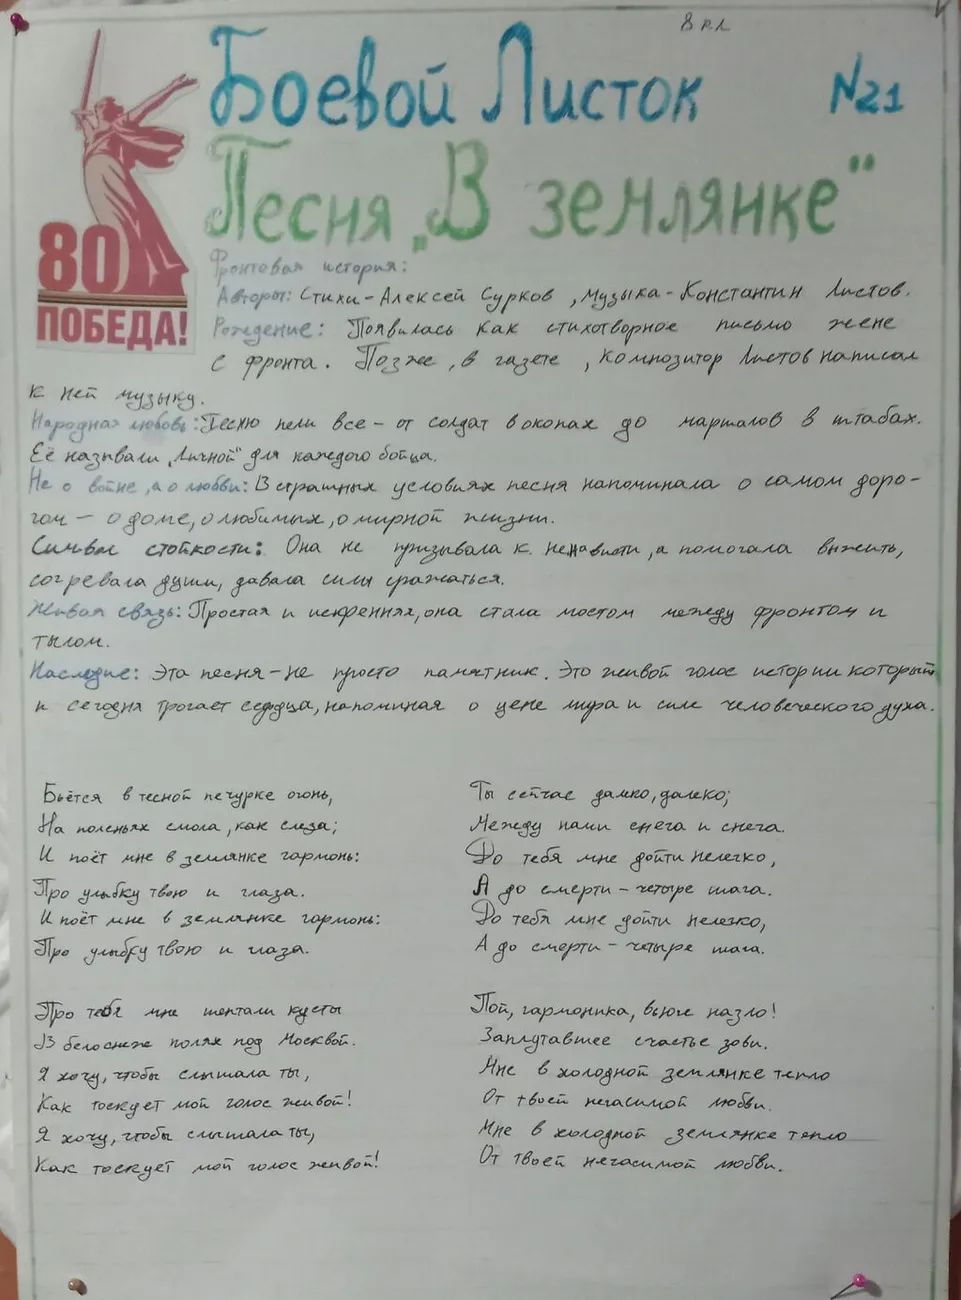 8 кл
Боевой Листок №21
Песня „В землянке"
80
ПОБЕДА!
Фронтовая история:
Авторы: Стихи - Алексей Сурков, Музыка - Константин Листов.
Рождение: Появилась как стихотворное письмо жене
с фронта. Позже, в газете, композитор Листов написал
к ней музыку.
Народная любовь: Песню пели все - от солдат в окопах до маршалов в штабах.
Её называли „Личной" для каждого бойца.
Не о войне, а о любви: В страшных условиях песня напоминала о самом доро-
гом - о доме, о любимых, о мирной жизни.
Символ стойкости: Она не призывала к ненависти, а помогала выжить,
согревала души, давала силы сражаться.
Живая связь: Простая и искренняя, она стала мостом между фронтом и
тылом.
Наследие: Эта песня - не просто памятник. Это живой голос истории который
и сегодня трогает сердца, напоминая о цене мира и силе человеческого духа.
Бьётся в тесной печурке огонь,
На поленьях смола, как слеза;
И поёт мне в землянке гармонь:
Про улыбку твою и глаза.
И поёт мне в землянке гармонь:
Про улыбку твою и глаза.
Про тебя мне шептали кусты
В белоснеж полях под Москвой.
Я хочу, чтобы слышала ты,
Как тоскует мой голос живой!
Я хочу, чтобы слышала ты,
Как тоскует мой голос живой!
Ты сейчас далеко, далеко;
Между нами снега и снега.
До тебя мне дойти нелегко,
А до смерти - четыре шага.
До тебя мне дойти нелегко,
А до смерти - четыре шага.
Пой, гармоника, вьюге назло!
Заплутавшее счастье зови.
Мне в холодной землянке тепло
От твоей негасимой любви.
Мне в холодной землянке тепло
От твоей негасимой любви.